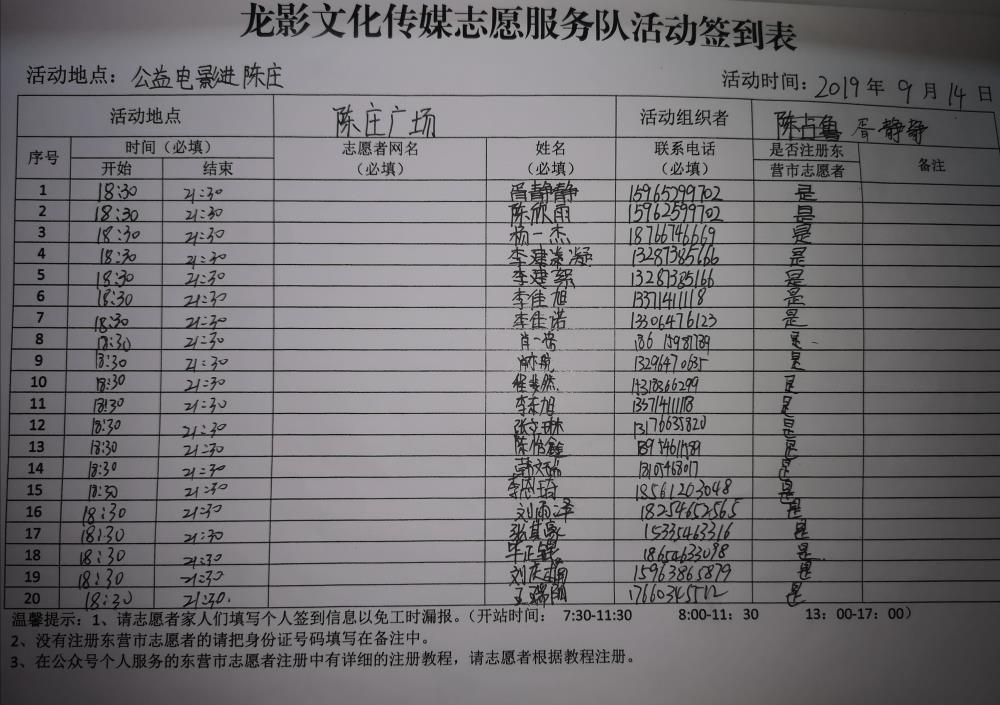 龙影文化传媒志愿服务队活动签到表
活动地点：公益电影进陈庄 活动时间：2019年9月14日
活动地点 陈庄广场 活动组织者 陈占鲁 胥静静
序号 时间（必填） 志愿者网名（必填） 姓名（必填） 联系电话（必填） 是否注册东营市志愿者 备注
开始 结束
1 18:30 21:30 胥静静 15965299702 是
2 18:30 21:30 陈欣雨 15962599702 是
3 18:30 21:30 杨一杰 18766746669 是
4 18:30 21:30 李建凝 13287385666 是
5 18:30 21:30 李建絮 13287385166 是
6 18:30 21:30 李佳旭 13371411118 是
7 18:30 21:30 李佳诺 13306476123 是
8 18:30 21:30 肖一 是
9 18:30 21:30 13296470635 是
10 18:30 21:30 是
11 18:30 21:30 李东旭 13371411118 是
12 18:30 21:30 张文琳 13176635820 是
13 18:30 21:30 是
14 18:30 21:30 是
15 18:30 21:30 李恩琦 18561203048 是
16 18:30 21:30 刘雨泽 18254652565 是
17 18:30 21:30 15335463316 是
18 18:30 21:30 18654633098 是
19 18:30 21:30 15963865879 是
20 18:30 21:30. 王瑞阳 是
温馨提示：1、请志愿者家人们填写个人签到信息以免工时漏报。（开站时间： 7:30-11:30 8:00-11：30 13：00-17：00）
2、没有注册东营市志愿者的请把身份证号码填写在备注中。
3、在公众号个人服务的东营市志愿者注册中有详细的注册教程，请志愿者根据教程注册。